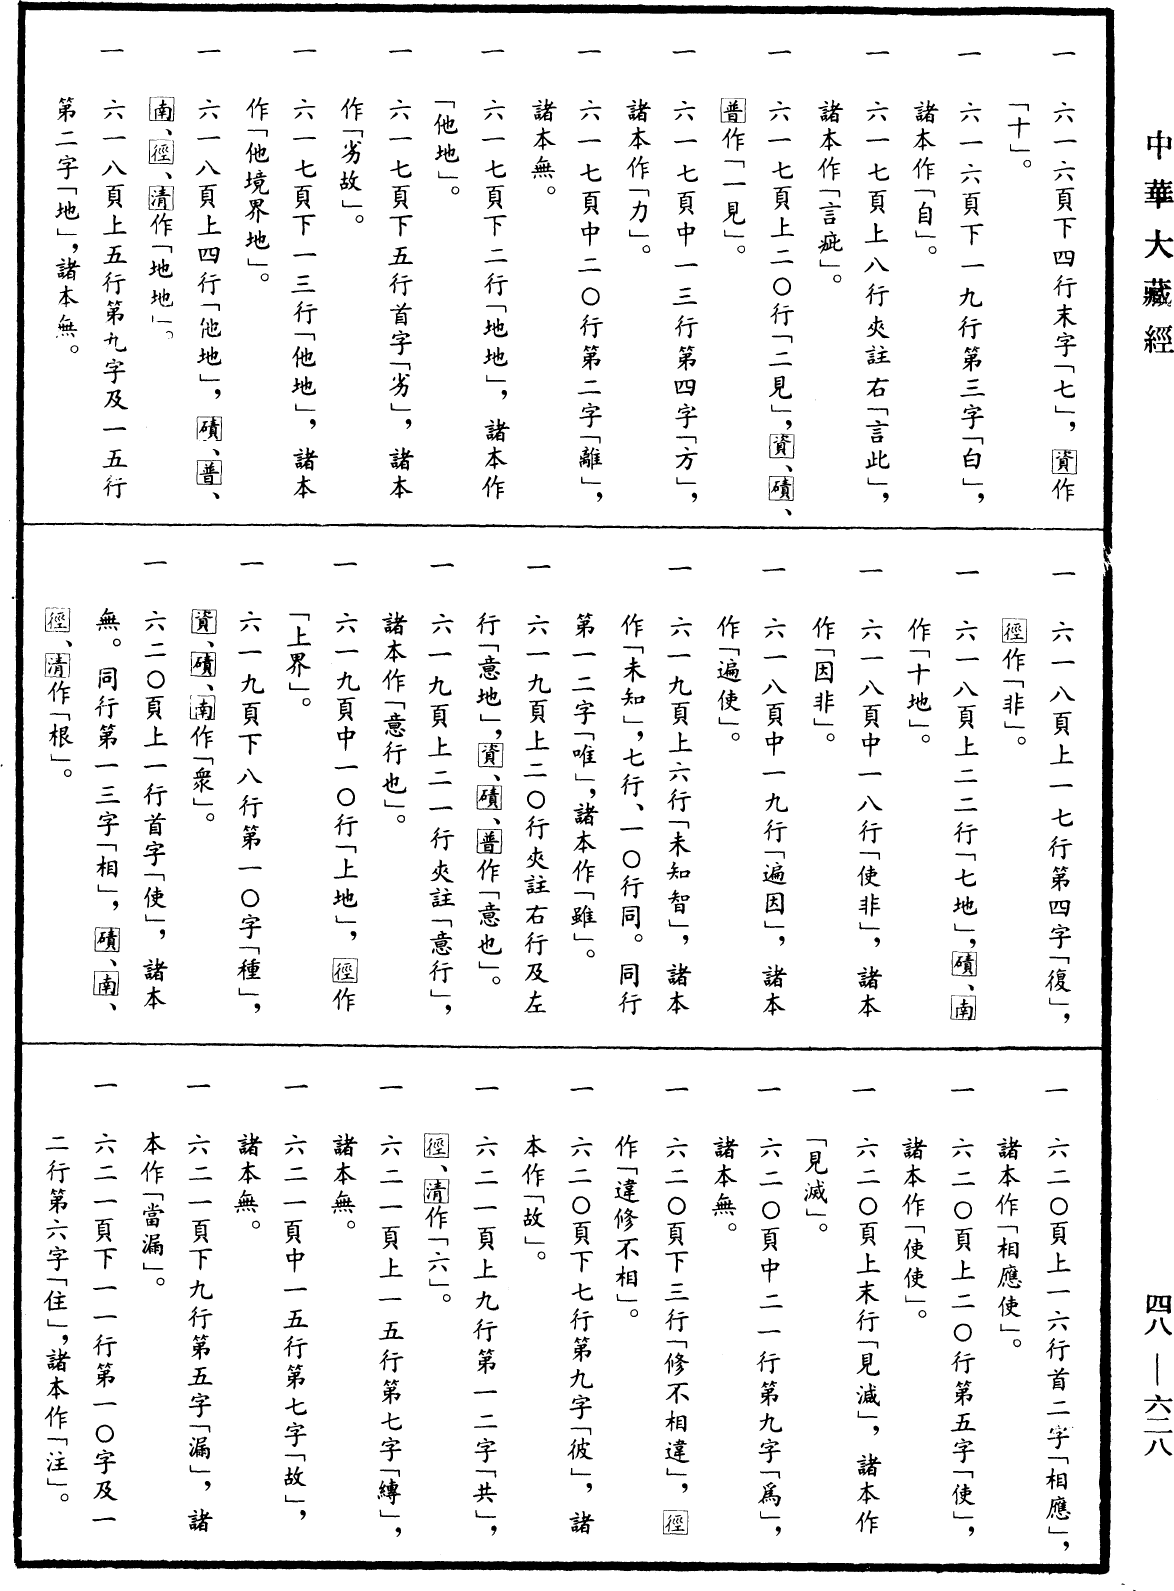 中華大藏經
四八—六二八
一 六一六頁下四行末字「七」，資作
「十」。
一 六一六頁下一九行第三字「白」，
諸本作「自」。
一 六一七頁上八行夾註右「言此」，
諸本作「言疵」。
一 六一七頁上二〇行「二見」，資、磧、
普作「一見」。
一 六一七頁中一三行第四字「方」，
諸本作「力」。
一 六一七頁中二〇行第二字「離」，
諸本無。
一 六一七頁下二行「地地」，諸本作
「他地」。
一 六一七頁下五行首字「劣」，諸本
作「劣故」。
一 六一七頁下一三行「他地」，諸本
作「他境界地」。
一 六一八頁上四行「他地」，磧、普、
南、徑、清作「地地」。
一 六一八頁上五行第九字及一五行
第二字「地」，諸本無。
一 六一八頁上一七行第四字「復」，
徑作「非」。
一 六一八頁上二二行「七地」，磧、南
作「十地」。
一 六一八頁中一八行「使非」，諸本
作「因非」。
一 六一八頁中一九行「遍因」，諸本
作「遍使」。
一 六一九頁上六行「未知智」，諸本
作「未知」，七行、一〇行同。同行
第一二字「唯」，諸本作「雖」。
一 六一九頁上二〇行夾註右行及左
行「意地」，資、磧、普作「意也」。
一 六一九頁上二一行夾註「意行」，
諸本作「意行也」。
一 六一九頁中一〇行「上地」，徑作
「上界」。
一 六一九頁下八行第一〇字「種」，
資、磧、南作「衆」。
一 六二〇頁上一行首字「使」，諸本
無。同行第一三字「相」，磧、南、
徑、清作「根」。
一 六二〇頁上一六行首二字「相應」，
諸本作「相應使」。
一 六二〇頁上二〇行第五字「使」，
諸本作「使使」。
一 六二〇頁上末行「見減」，諸本作
「見滅」。
一 六二〇頁中二一行第九字「爲」，
諸本無。
一 六二〇頁下三行「修不相違」，徑
作「違修不相」。
一 六二〇頁下七行第九字「彼」，諸
本作「故」。
一 六二一頁上九行第一二字「共」，
徑、清作「六」。
一 六二一頁上一五行第七字「縛」，
諸本無。
一 六二一頁中一五行第七字「故」，
諸本無。
一 六二一頁下九行第五字「漏」，諸
本作「當漏」。
一 六二一頁下一一行第一〇字及一
二行第六字「住」，諸本作「注」。